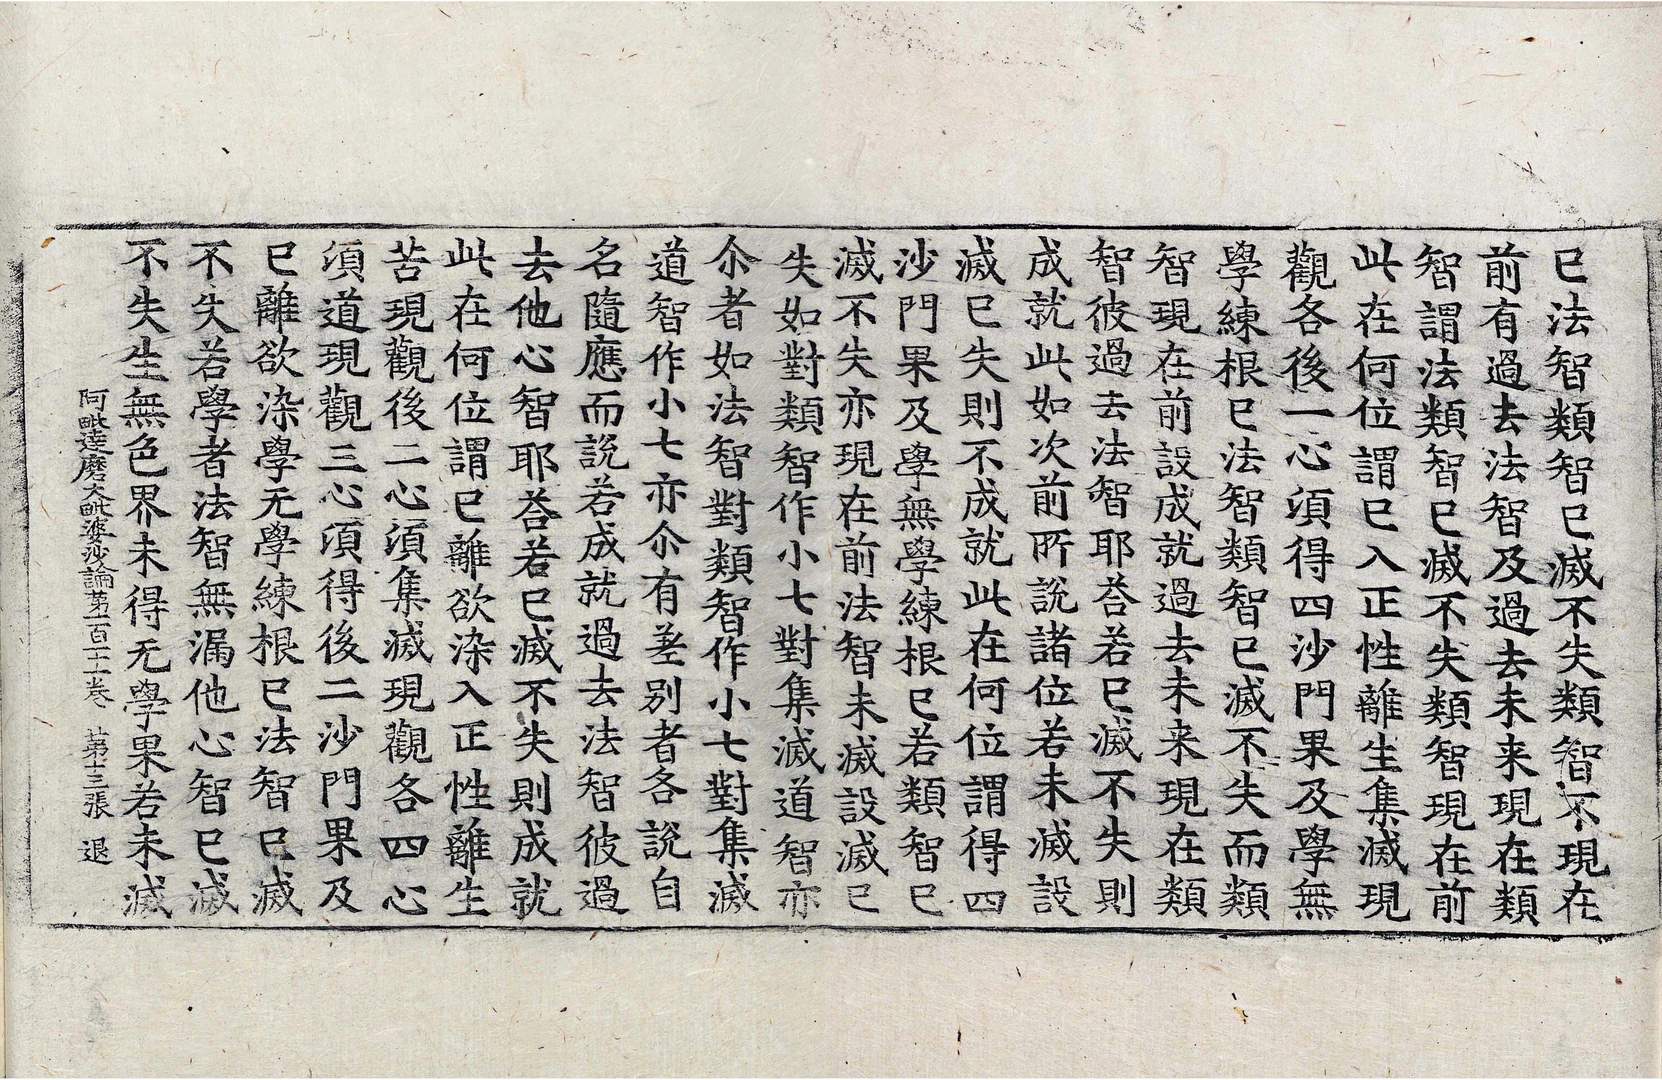 已法智類智已滅不失類智不現在
前有過去法智及過去未来現在類
智謂法類智已滅不失類智現在前
此在何位謂已入正性離生集滅現
觀各後一心須得四沙門果及學無
學練根已法智類智已滅不失而類
智現在前設成就過去未来現在類
智彼過去法智耶荅若已滅不失則
成就此如次前所說諸位若未滅設
滅已失則不成就此在何位謂得四
沙門果及學無學練根已若類智已
滅不失亦現在前法智未滅設滅已
失如對類智作小七對集滅道智亦
尒者如法智對類智作小七對集滅
道智作小七亦尒有差别者各說自
名隨應而說若成就過去法智彼過
去他心智耶荅若已滅不失則成就
此在何位謂已離欲染入正性離生
苦現觀後二心須集滅現觀各四心
須道現觀三心須得後二沙門果及
已離欲染學无學練根已法智已滅
不失若學者法智無漏他心智已滅
不失生無色界未得无學果若未滅
阿毗達磨大毗婆沙論第一百十一卷 第十三張 退